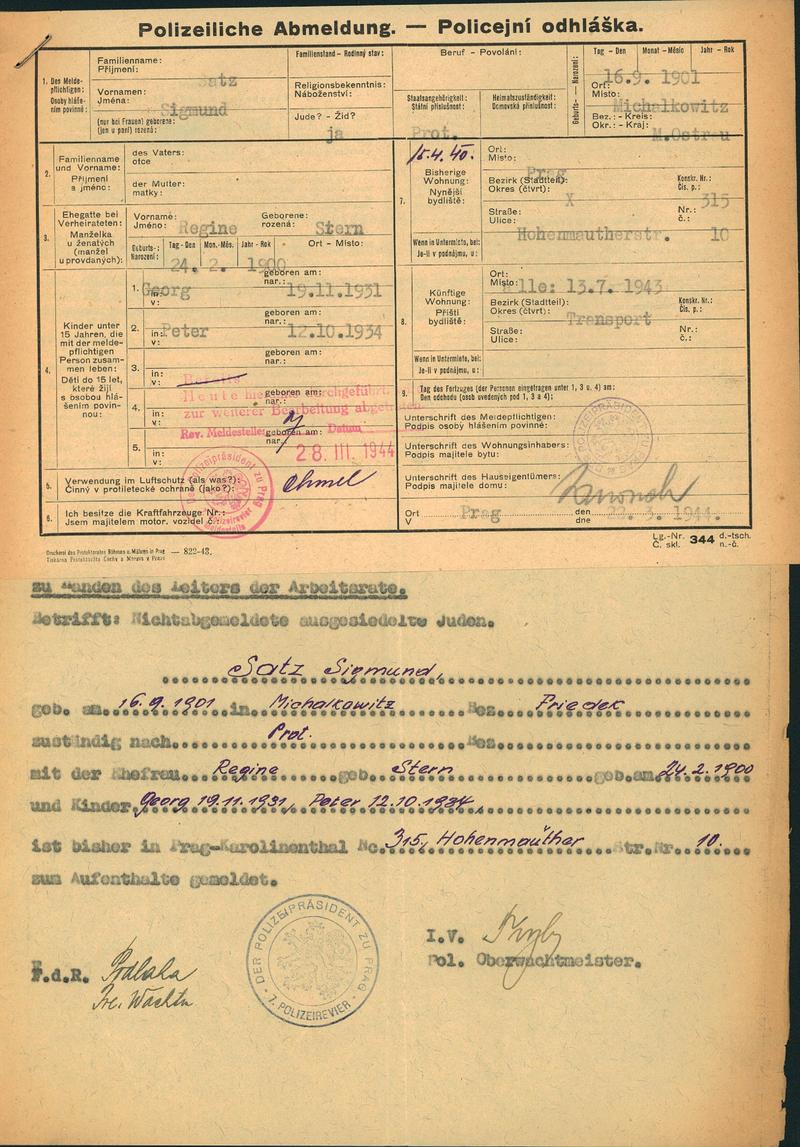 Polizeiliche Abmeldung. — Policejní odhláška.
1. Des Meldepflichtigen: Osoby hlášením povinné:
Familienname: Příjmení: Satz
Vornamen: Jména: Sigmund
(nur bei Frauen) geborene: (jen u paní) rozená:
Familienstand - Rodinný stav:
Religionsbekenntnis: Náboženství:
Jude? - Žid? ja
Beruf - Povolání:
Staatsangehörigkeit: Státní příslušnost: Prot.
Heimatszuständigkeit: Domovská příslušnost:
Geburts- Narození:
Tag - Den Monat - Měsíc Jahr - Rok
16.9. 1901
Ort: Místo: Michalkowitz
Bez.: - Kreis: Okr.: - Kraj: M.Ostrau
2. Familienname und Vorname: Příjmení a jméno:
des Vaters: otce
der Mutter: matky:
3. Ehegatte bei Verheirateten: Manželka u ženatých (manžel u provdaných):
Vorname: Jméno: Regine
Geborene: rozená: Stern
Geburts-: Narození: Tag - Den Mon.-Měs. Jahr - Rok Ort - Místo:
24. 2. 1900
4. Kinder unter 15 Jahren, die mit der meldepflichtigen Person zusammen leben: Děti do 15 let, které žijí s osobou hlášením povinnou:
1. Georg geboren am: nar.: 19.11.1931
in: v:
2. Peter geboren am: nar.: 12.10.1934
in: v:
3. geboren am: nar.:
in: v:
4. geboren am: nar.:
in: v:
5. geboren am: nar.:
in: v:
Heute hier durchgeführt
zur weiterer Bearbeitung
Rev. Meldestelle Datum
28. III. 1944
5. Verwendung im Luftschutz (als was?): Činný v protiletecké ochraně (jako?):
6. Ich besitze die Kraftfahrzeuge Nr.: Jsem majitelem motor. vozidel č.:
15.4.40.
7. Bisherige Wohnung: Nynější bydliště:
Ort: Místo: Prag
Bezirk (Stadtteil): Okres (čtvrt): X
Konskr. Nr.: Čis. p.: 315
Straße: Ulice: Hohenmautherstr.
Nr.: č.: 10
Wenn in Untermiete, bei: Je-li v podnájmu, u:
8. Künftige Wohnung: Příští bydliště:
Ort: Místo: 13.7. 1943
Bezirk (Stadtteil): Okres (čtvrt): Transport
Konskr. Nr.: Čis. p.:
Straße: Ulice:
Nr.: č.:
Wenn in Untermiete, bei: Je-li v podnájmu, u:
9. Tag des Fortzuges (der Personen eingetragen unter 1, 3 u. 4) am: Den odchodu (osob uvedených pod 1, 3 a 4):
Unterschrift des Meldepflichtigen: Podpis osoby hlášením povinné:
Unterschrift des Wohnungsinhabers: Podpis majitele bytu:
Unterschrift des Hauseigentümers: Podpis majitele domu:
Ort V Prag den dne 22. 3. 1944.
Druckerei des Protektorates Böhmen u. Mähren in Prag — 822-43.
Tiskárna Protektorátu Čechy a Morava v Praze
Lg.-Nr. Č. skl. 344 d.-tsch. n.-č.
zu Handen des Leiters der
Betrifft: Nichtabgemeldete ausgesiedelte Juden.
Satz Sigmund,
geb. am 16.9.1901 in Michalkowitz Bez. Friedek
zuständig nach Prot. Bez.
mit der Ehefrau Regine geb. Stern geb.am 24.2.1900
und Kinder Georg 19.11.1931, Peter 12.10.1934,
ist bisher in Prag-Karolinenthal Nc. 315, Hohenmauther Str.Nr. 10.
zum Aufenthalte gemeldet.
DER POLIZEIPRÄSIDENT ZU PRAG
7. POLIZEIREVIER
I.V.
Pol. Oberwachtmeister.
F.d.R.